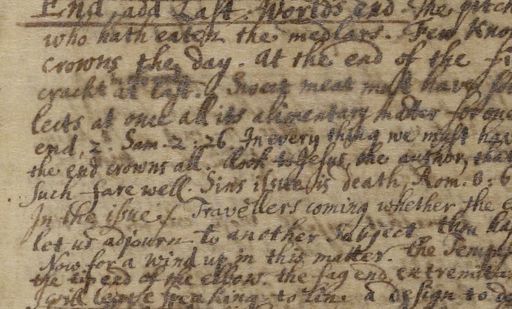 End, add Last. Worlds end the pitch
who hath eaten the medlars. Few Kno
crowns the day. At the end of the fi
crackt at last. Sweet meat must have so
lects at once all its alimentary matter for one
end, 2. Sam. 2. 26. In every thing we must ha
the end crowns all. look to Jesus, the author, that
Such farewell. Sins issue is death, Rom. 6
In the issue. Travellers coming whether the e
let us adjourn to another Subject thru ha
Now for a wind up in this matter. the Temp
the end of the elbow. the fag end extremit
I will leave speaking to a design to d